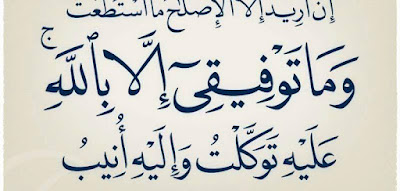 إِنْ أُرِيدُ إِلَّا ٱلْإِصْلَٰحَ مَا ٱسْتَطَعْتُ ۚ
وَمَا تَوْفِيقِىٓ إِلَّا بِٱللَّهِ ۚ
عَلَيْهِ تَوَكَّلْتُ وَإِلَيْهِ أُنِيبُ